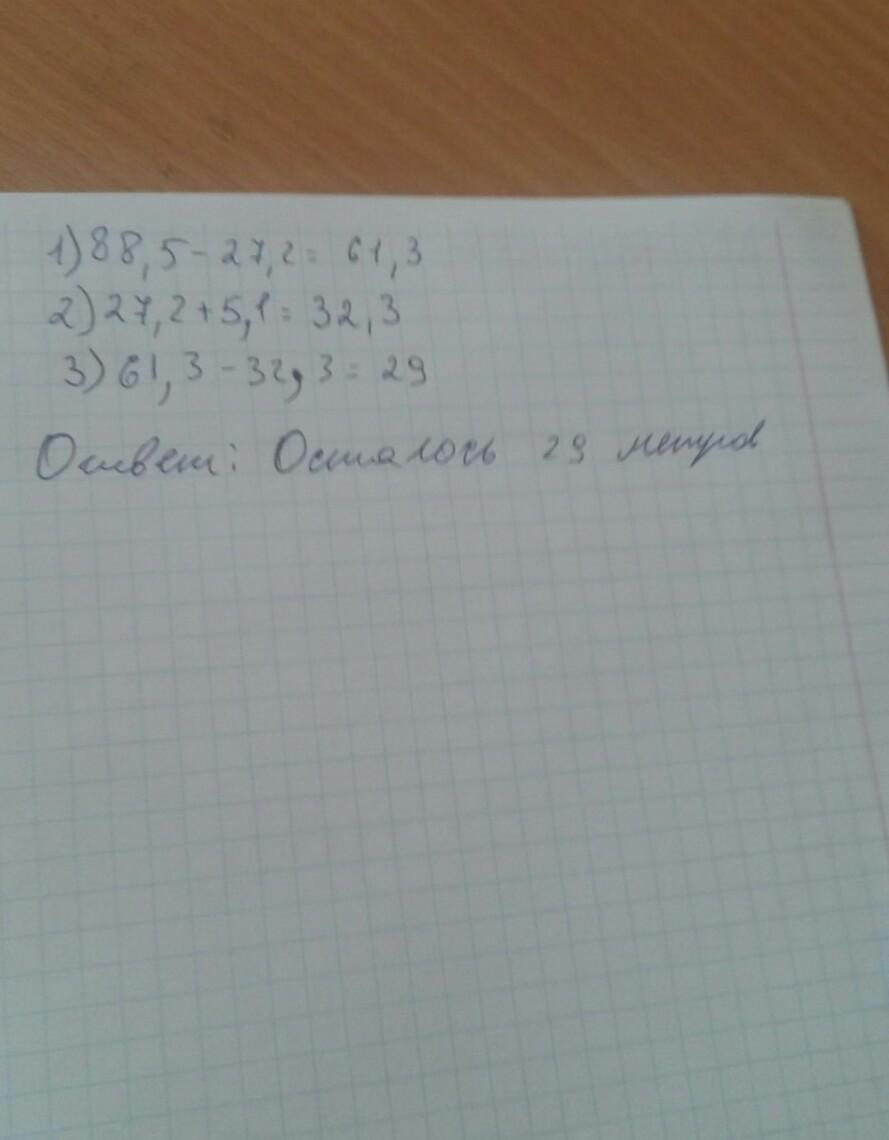 1) 88,5 - 27,2 = 61,3
2) 27,2 + 5,1 = 32,3
3) 61,3 - 32,3 = 29
Ответ: Осталось 29 метров